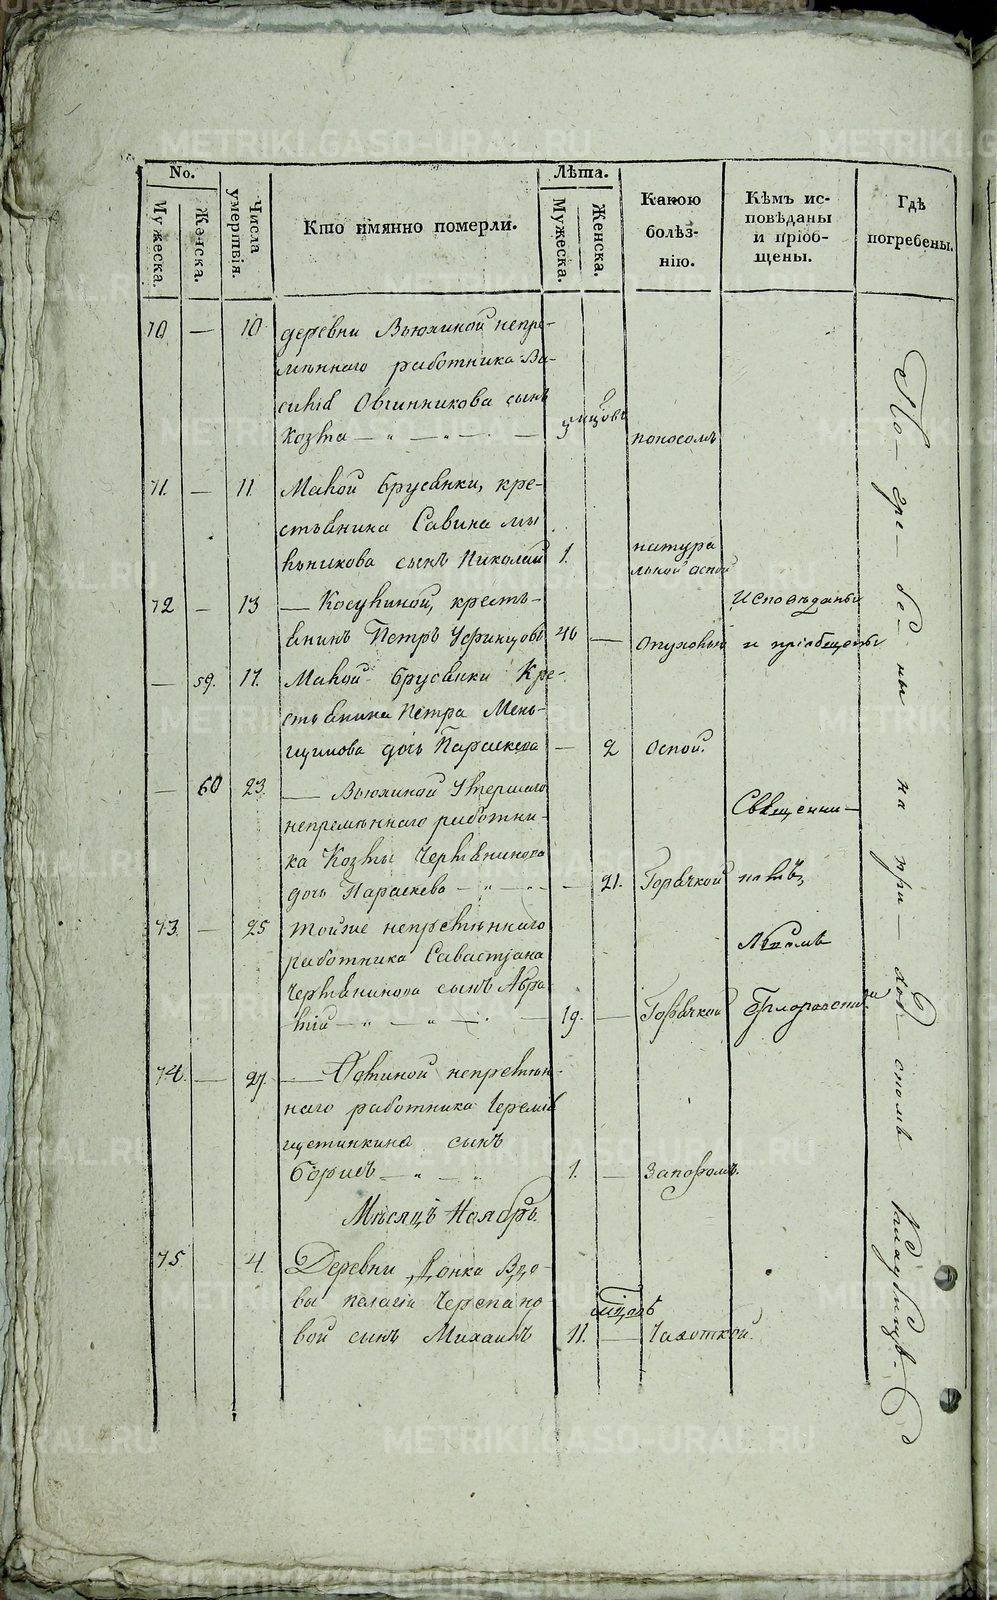 No.
Лѣта.
Мужеска.
Женска.
Числа умертвія.
Кто имянно померли.
Мужеска.
Женска.
Какою болѣзнію.
Кѣмъ исповѣданы и пріобщены.
Гдѣ погребены.
70 — 10 деревни Вьюхиной непре-
мѣннаго работника Ва-
силія Овчинникова сынъ
Козма — „ — „ — 9 мцовъ поносомъ
71. — 11 Малой Брусянки, кре-
стьянина Савина Мы
льникова сынъ Николай 1. натура
льной оспой
72 — 13 — Косулиной, кресть-
янинъ Петръ 46 — опухолью
Исповѣданы
и пріобщены
— 59. 17. Малой Брусянки Кре-
стьянина Петра Мень-
щикова дочь Параскева — 2 Оспой.
— 60 23. — Вьюхиной Умершаго
непремѣннаго работни-
ка Козмы Чермянинова
дочь Параскева — „ — „ — 21. Горячкой
Священни-
комъ
73. — 25 тойже непремѣннаго
работника Савастіана
Чермянинова сынъ
— „ — „ — 19. — Горячкой
74. — 27. — непремѣн-
наго работника
щетинкина сынъ
Борисъ — „ — „ 1. — Запоромъ.
Мѣсяцъ Ноябрь.
75 4. Деревни Вдо-
вы Пелагіи Черепано
вой сынъ Михаилъ 11. — Чахоткой.
Погребены на приходскомъ кладбищѣ
METRIKI.GASO-URAL.RU